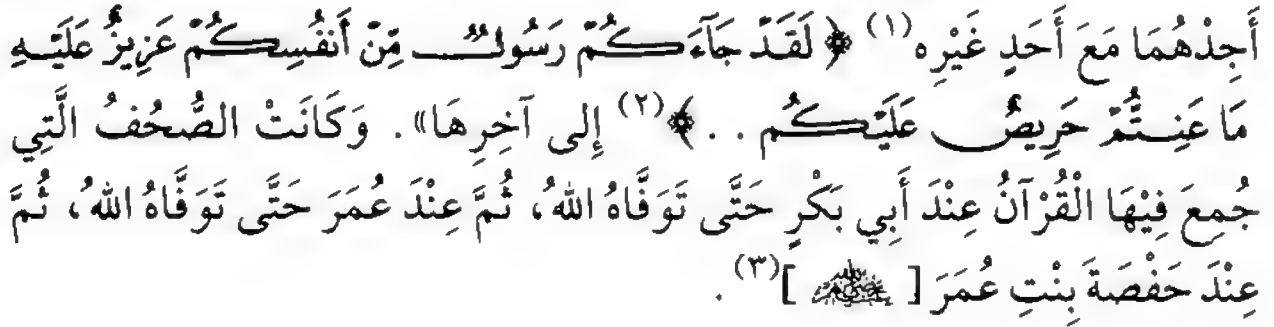 أَجِدْهُمَا مَعَ أَحَدٍ غَيْرِه(١) ﴿لَقَدْ جَآءَكُمْ رَسُولٌ مِّنْ أَنفُسِكُمْ عَزِيزٌ عَلَيْهِ
مَا عَنِتُّمْ حَرِيصٌ عَلَيْكُم . . ﴾(٢) إِلى آخِرِهَا». وَكَانَتْ الصُّحُفُ الَّتِي
جُمِعَ فِيْهَا الْقُرْآنُ عِنْدَ أَبِي بَكْرٍ حَتَّى تَوَفَّاهُ اللهُ، ثُمَّ عِنْدَ عُمَرَ حَتَّى تَوَفَّاهُ اللهُ، ثُمَّ
عِنْدَ حَفْصَةَ بِنْتِ عُمَرَ [ ](٣).